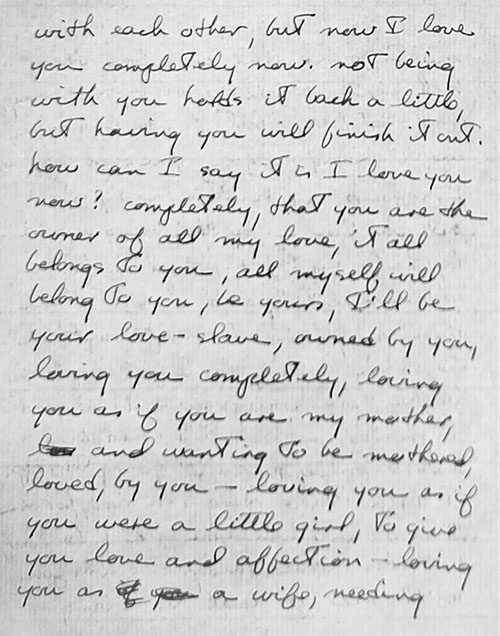 with each other, but now I love
you completely now. not being
with you holds it back a little,
but having you will finish it out.
how can I say it is I love you
now? completely, that you are the
owner of all my love, it all
belongs to you, all myself will
belong to you, be yours, I'll be
your love-slave, owned by you,
loving you completely, loving
you as if you are my mother,
and wanting to be mothered,
loved, by you – loving you as if
you were a little girl, to give
you love and affection – loving
you as a wife, needing